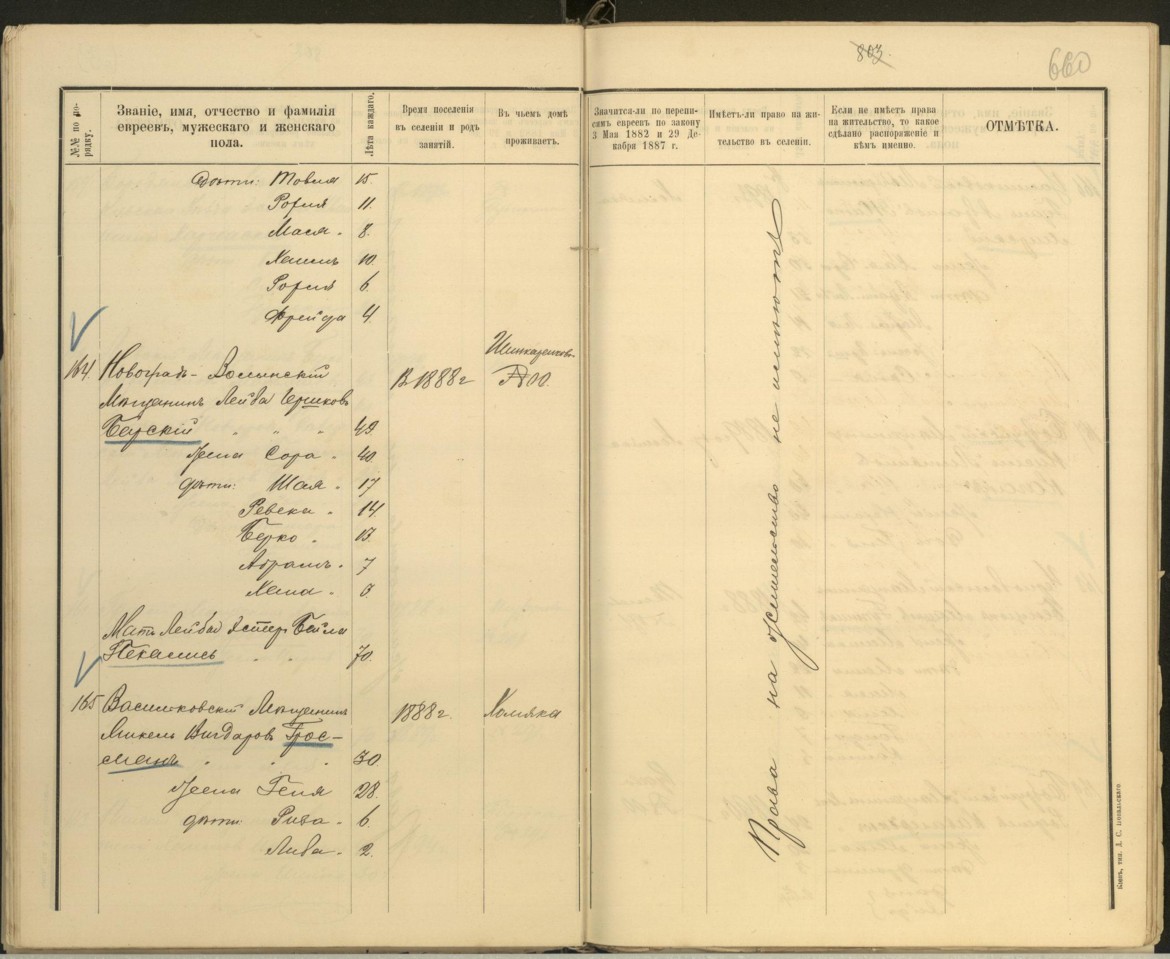 803.
660
№№ по по-
рядку.
Званіе, имя, отчество и фамилія
евреевъ, мужескаго и женскаго
пола.
Лѣта каждаго.
Время поселенія
въ селеніи и родъ
занятій.
Въ чьемъ домѣ
проживаетъ.
Значится-ли по перепи-
сямъ евреевъ по закону
3 Мая 1882 и 29 Де-
кабря 1887 г.
Имѣетъ-ли право на жи-
тельство въ селеніи.
Если не имѣетъ права
на жительство, то какое
сдѣлано распоряженіе и
кѣмъ именно.
ОТМѢТКА.
дѣти: Товия 15.
11.
Мася. 8.
10.
6.
Фрейда 4.
164. Новоградъ-Волинскій
Шинкаренков.
В 1888 г
Мѣщанинъ Лейба Гершковъ
Барскій " " " 49.
Жена Сора. 40
дѣти: Шая. 17
Ревека. 14
Берко. 13
Абрамъ. 7
Хана.
Мать Лейбы Эстер Бейла
70.
165 Васильковскій Мѣщанинъ
1888 г.
Хомяка
Янкель Вигдаровъ Грос-
манъ " " . 30
Жена Геня 28.
дѣти: Рива. 6.
Либа. 2.
Права на жительство не имѣютъ
Кіевъ, тип. Д. С. Повальскаго